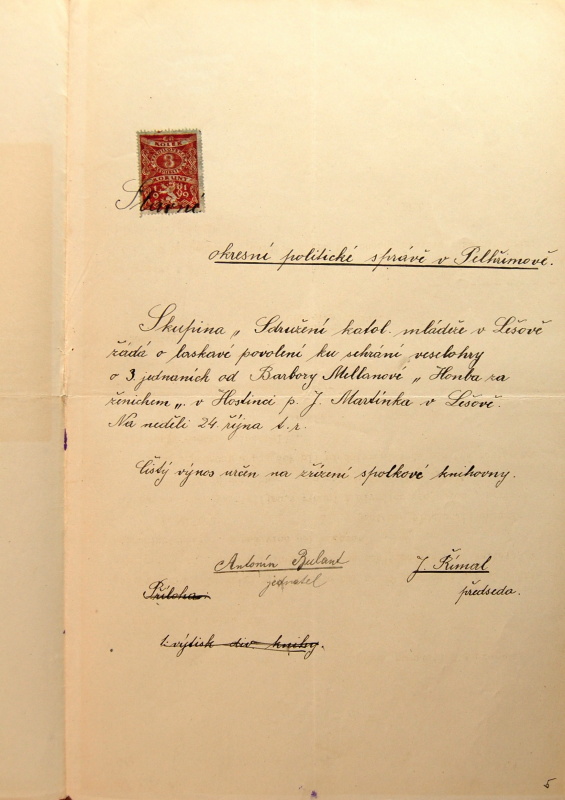 KOLEK
3
KORUNY
Slavné
okresní politické správě v Pelhřimově.
Skupina „ Sdružení katol. mládeže v Lešově
žádá o laskavé povolení ku sehrání veselohry
o 3. jednaních od Barbory Mellanové „ Honba za
ženichem „ v Hostinci p. J. Martínka v Lešově.
Na neděli 24 října t. r.
Čistý výnos určen na zřízení spolkové knihovny.
Antonín Bulant J. Římal
jednatel předseda.
Příloha:
1 výtisk div. knihy.
5